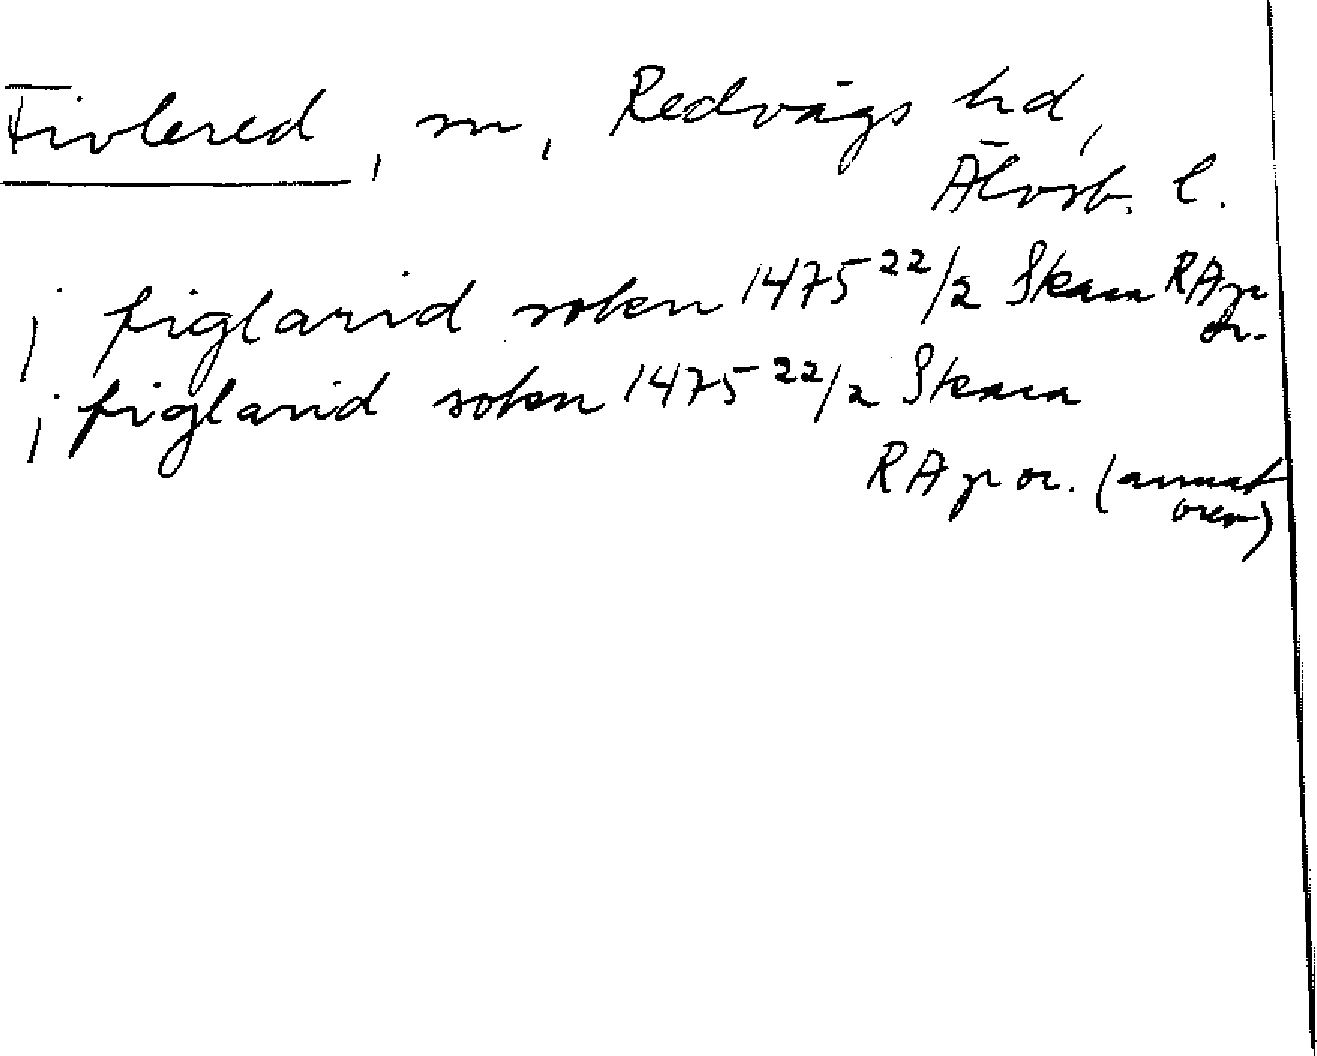 Fivlered, sn, Redvägs hd,
Älvsb. l.
j figlarid sokn 1475 22/2 Skara RAp
or.
j figlarid sokn 1475 22/2 Skara
RAp or. (annat
brev)